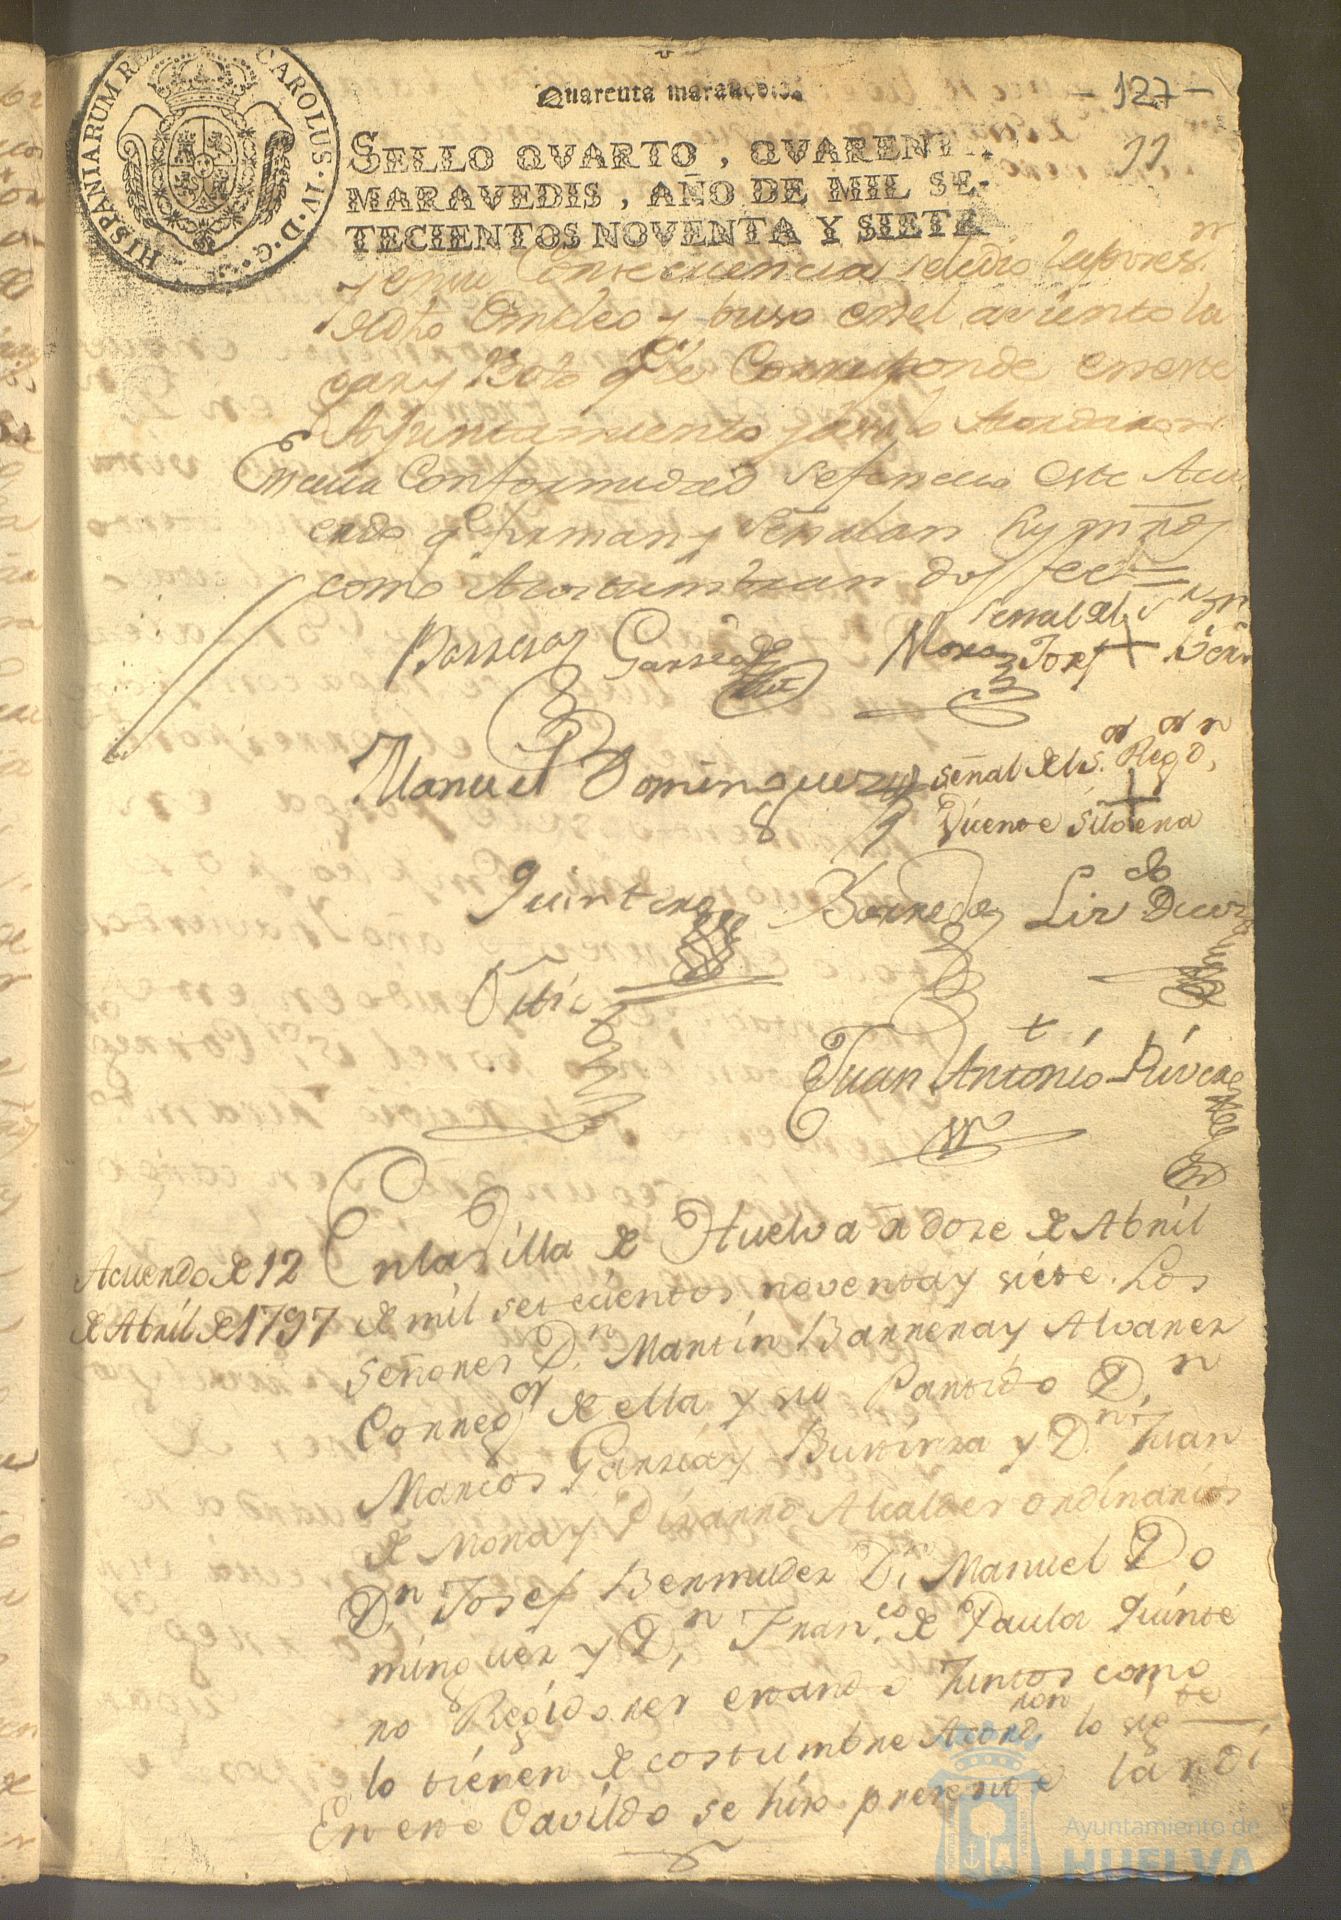 HISPANIARUM REX CAROLUS·IV·D·G·
Quarenta maravedis.
- 127 -
SELLO QVARTO, QVARENTA
MARAVEDIS, AÑO DE MIL SE-
TECIENTOS NOVENTA Y SIETE
y en su Consecuencia se le dio la poses.on
de dho Empleo y puso en el asiento lu
gar y Boto q.e le Corresponde en este
Ayuntamiento y assi lo Acordaron
En cuia Conformidad se fenecio este Acu
erdo q firman y señalan
como Acostumbran doy fee=
Barrera Garcia Mora señal del
Josef + Berm
Manuel Dominguez señal del s.or Reg.or D.n
Vicente + Silvera
Quintero Barreda Liz.do Diaz
Juan Antonio Rivera
Acuerdo de 12
de Abril de 1797
En la Villa de Huelva a doze de Abril
de mil setecientos noventa y siete. Los
señores D.n Martin Barrena y Alvarez
Correg.or de ella y su Partido D.n
Marcos Garzia y Butinza y D.n Juan
de Mora y Pizarro Alcaldes ordinarios
D.n Josef Bermudez D.n Manuel Do
minguez y D.n Fran.co de Paula Quinte
ro Regidores estando Juntos como
lo tienen de costumbre Acord.ron lo sig.te
En este Cavildo se hizo presente la rl di
Ayuntamiento de
HUELVA